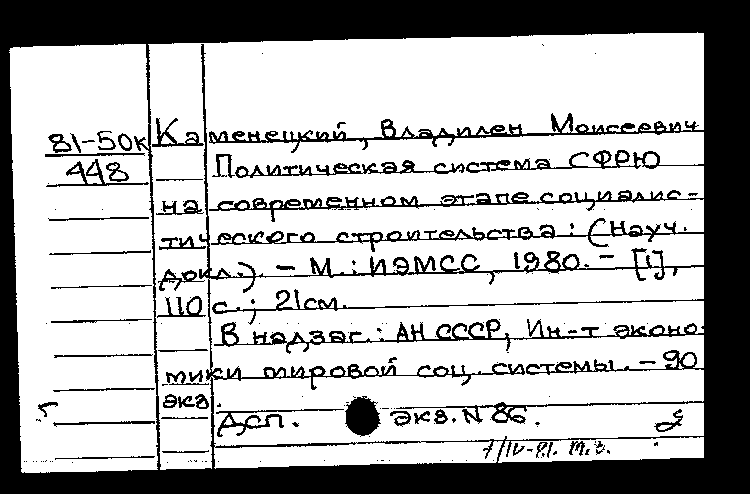 81-50к Каменецкий, Владилен Моисеевич
448 Политическая система СФРЮ
на современном этапе социалис-
тического строительства: (Науч.
докл.). - М.: ИЭМСС, 1980. - [1],
110 с.; 21см.
В надзаг.: АН СССР, Ин-т эконо-
мики мировой соц. системы. - 90
экз.
Дсп. экз. N 86.